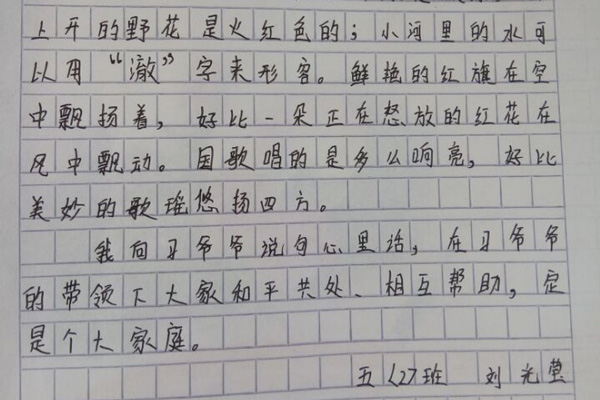 上开的野花是火红色的；小河里的水可
以用“澈”字来形客。鲜艳的红旗在空
中飘扬着，好比一朵正在怒放的红花在
风中飘动。国歌唱的是多么响亮，好比
美妙的歌瑶悠扬四方。
我向习爷爷说句心里话，在习爷爷
的带领下大家和平共处、相互帮助，定
是个大家庭。
五<2>班 刘光莹